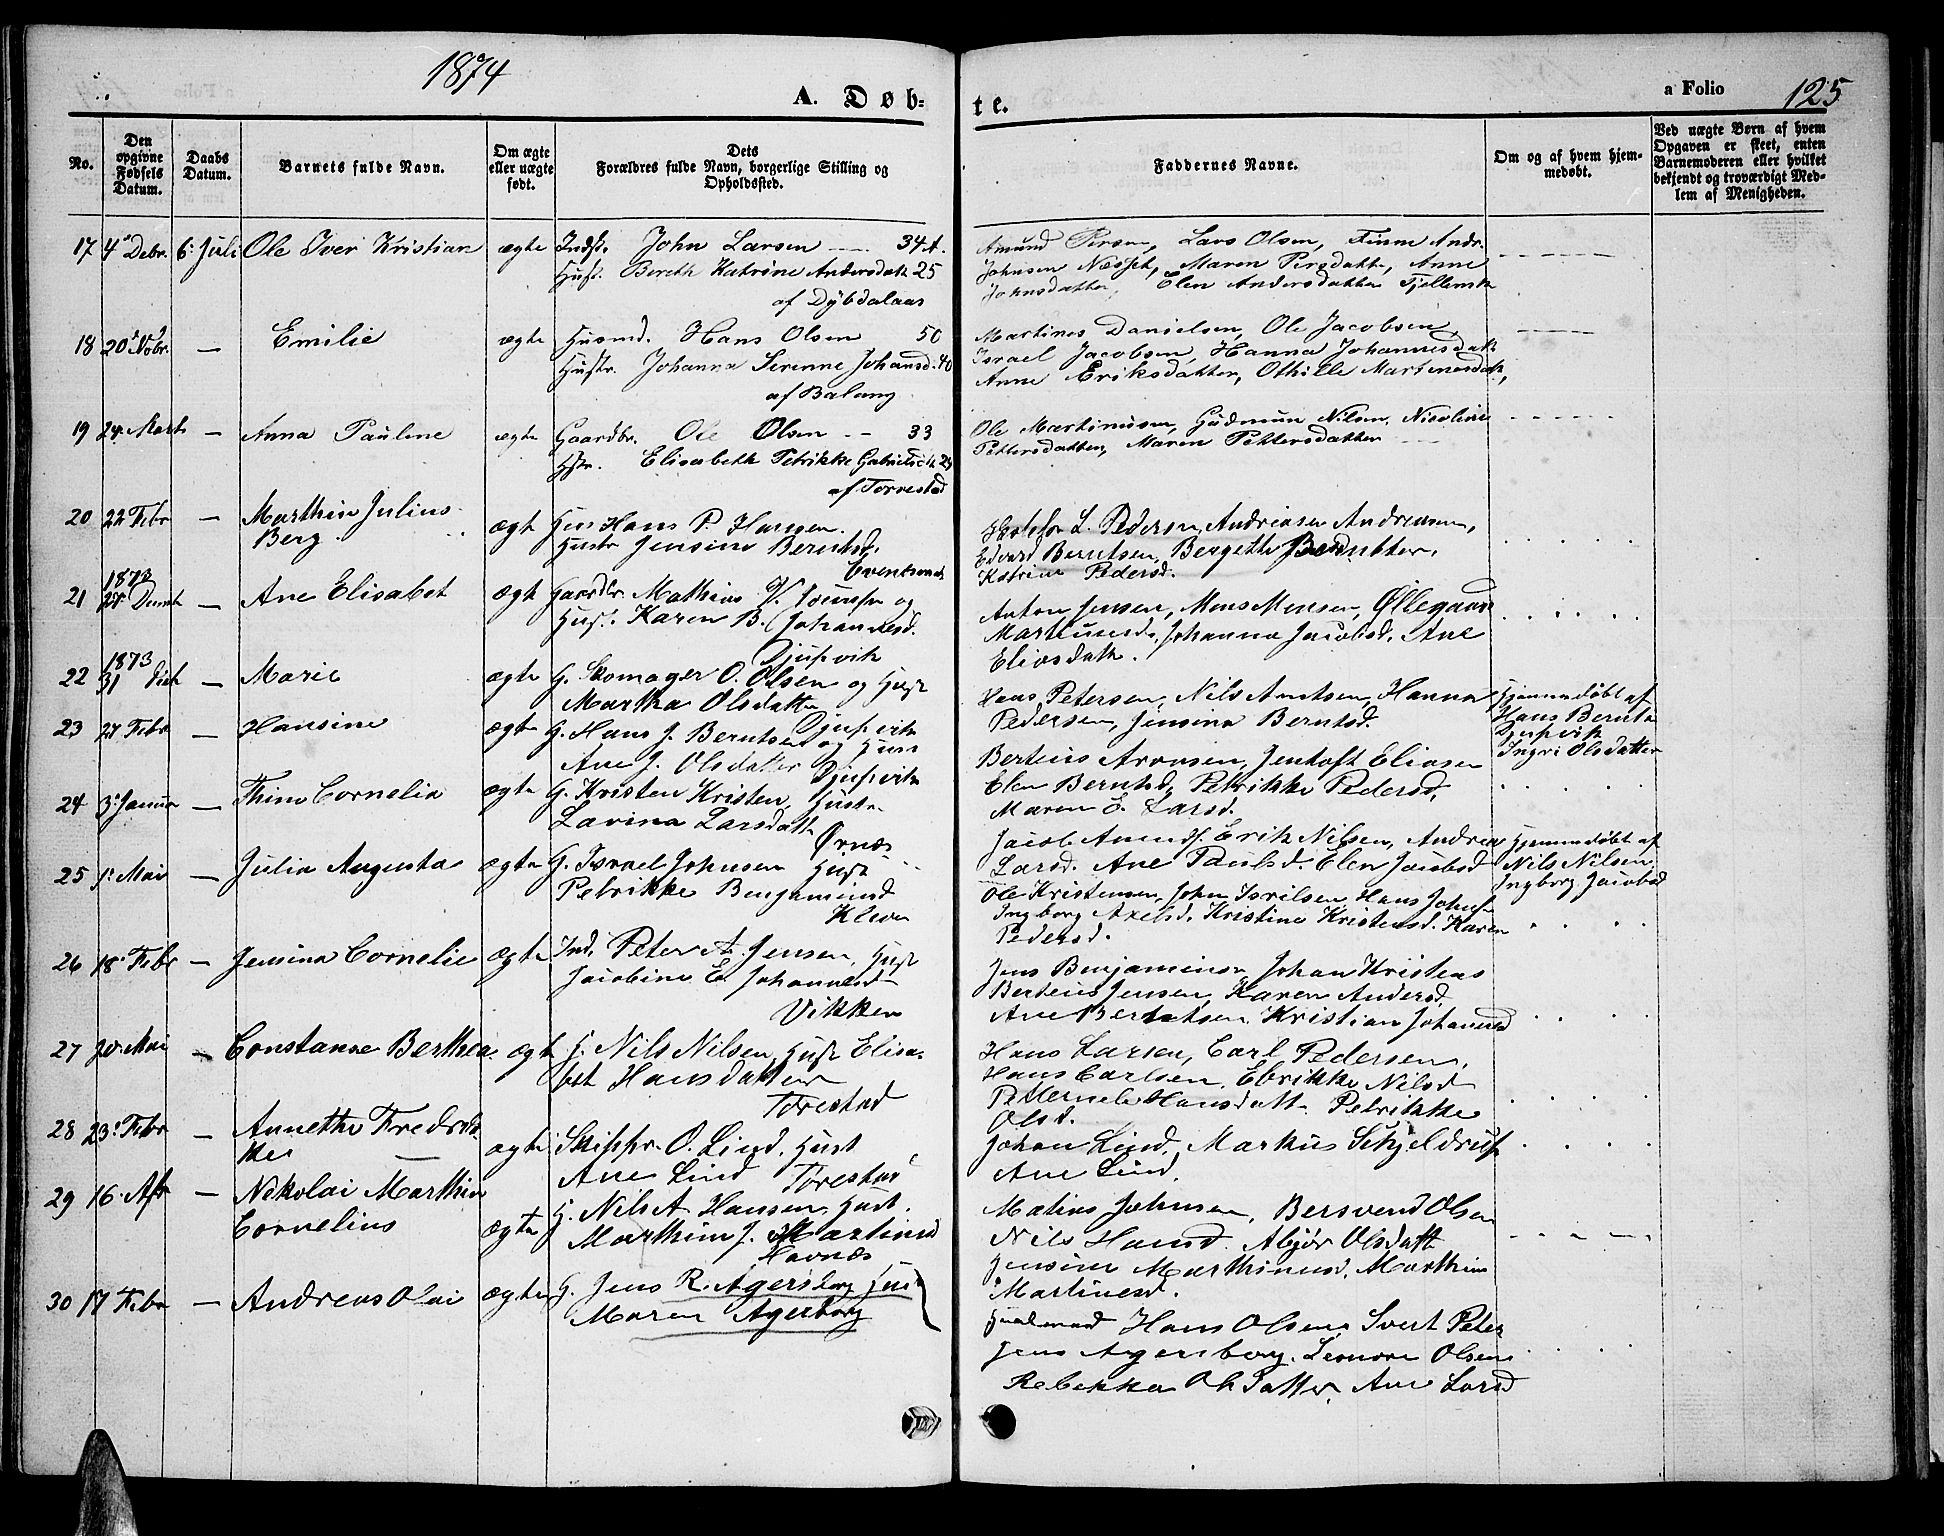 1874
A. Døb=
te.
a Folio 125
No.
Den opgivne Fødsels Datum.
Daabs Datum.
Barnets fulde Navn.
Om ægte eller uægte født.
Dets Forældres fulde Navn, borgerlige Stilling og Opholdssted.
Faddernes Navne.
Om og af hvem hjemmedøbt.
Ved uægte Børn af hvem Opgaven er skeet, enten Barnemoderen eller hvilket bekjendt og troværdigt Medlem af Menigheden.
17 4 Debr. 6. Juli Ole Iver Kristian ægte Indst. John Larsen 34 A.
Hust. Bereth Katrine Andersdatt 25
af Dybdalaas
Amund Persen, Lars Olsen, Finn Andr.
Johnsen Næsset, Maren Persdatt., Anne
Johnsdatter, Elen Andersdatter
18 20 Nobr. — Emilie ægte Husmd. Hans Olsen 50
Hustr. Johanna Serenne Johansd. 40
af Balang
Martines Danielsen, Ole Jacobsen,
Israel Jacobsen, Hanna Johannesdatt
Anne Eriksdatter, Othille Martinesdatt,
19 24 Marts — Anna Pauline ægte Gaardbr. Ole Olsen 33
Hstr. Elisabeth Petrikke Gabrielsdt 29
af Torrestad
Ole Martinusen, Gudmun Nilsen, Nicoline
Pettersdatter, Maren Pettersdatter
20 22 Febr — Marthin Julius
Berg
ægt Hus Hans P. Hansen
Hustr Jensine Berntsd.
Evenskjær
L. Pedersen, Andreas Andreasen,
Edvard Berntsen, Bergette
Katrine Pedersd.
21 1873 — Ane Elisabet ægt Gaardbr. Mathias
Hust. Karen B. Johannesd.
Djupvik
Anton Jensen, Mons Monsen, Øllegaard
Martinusd. Johanna Jacobsd. Ane
Eliasdatt.
22 1873
31 — Marie ægte G. Skomager O. Olsen og Hust
Martha Olsdatter
Djupvik
Hans Petersen, Nils Arntsen, Hanna
Pedersen, Jensina Berntsd.
Hjemmedøbt af
Hans Berntn
Djupvik
Ingri Olsdatter
23 27 Febr — Hansine ægte G. Hans J. Berntsen og Hust
Ane J. Olsdatter Djupvik
Berteus Aronsen, Jentoft Eliasen
Elen Berntsd, Petrikke Pedersd,
Maren E. Larsd.
24 3 Janua — Thina Cornelia ægte G. Kristen Kristen, Hustr
Lavina Larsdatt
Ørnes
Jacob Erik Nilsen, Andrea
Larsd. Ane Paulsd. Elen Jacobsd
Hjemmedøbt af
Nils Nilsen,
Ingborg Jacobsd
25 1. Mai — Julia Augusta ægte G. Israel Johnsen Hust
Petrikke Benjamind
Kleven
Ole Kristensen, John Isrilsen, Hans Johnsn
Ingborg Axelsd. Kristine Kristensd. Karen
Pedersd.
26 18 Febr — Jensina Cornelie ægte Ind. Peter A. Jensen, Hust
Jacobine E Johannesd
Vikken
Jens Benjaminsn, Johan Kristens
Berteus Jensen, Karen Andersd,
Ane Berntsen, Kristian Johannsd
27 20 Mai — Constanse Berthea ægt G. Nils Nilsen, Hust Elisa-
bet Hansdatter
Torestad
Hans Larsen, Carl Pedersen,
Hans Carlsen, Ebrikke Nilsd
Petternele Hansdatt. Petrikke
Olsd.
28 23. Febr — Annetthe Fredrik-
ke
ægte Skippr. O. Lind, Hust
Ane Lind Torestad
Johan Lind, Markus Schjeldrup
Ane Lind
29 16. Apr — Nikolai Marthin
Cornelius
ægte G. Nils A Hansen, Hust.
Marthin J. Martinsd
Havnæs
Matias Johnsen, Bersvend Olsen
Nils Hansd. Abjør Olsdatt
Jensine Marthinusd, Marthin
Martinesd.
30 17 Febr — Andreas Olai ægte G. Jens R. Agersborg Hus
Maren Agerborg
Hans Olsen, Svert Peter
Jens Agersborg, Leonore Olsen
Rebekka Ole Datter, Ane Larsd